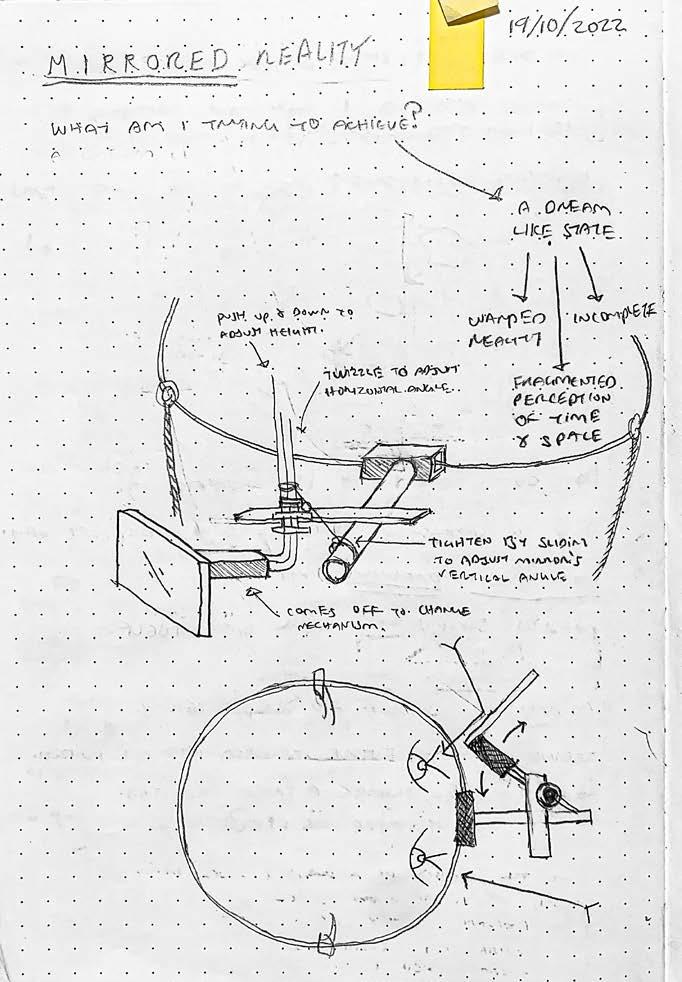 19/10/2022
MIRRORED REALITY
WHAT AM I TRYING TO ACHIEVE?
A DREAM
LIKE STATE
WARPED
REALITY
INCOMPLETE
FRAGMENTED
PERCEPTION
OF TIME
& SPACE
PUSH UP & DOWN TO
ADJUST HEIGHT.
TWIZZLE TO ADJUST
HORIZONTAL ANGLE.
TIGHTEN BY SLIDING
TO ADJUST MIRROR'S
VERTICAL ANGLE
COMES OFF TO CHANGE
MECHANISM.